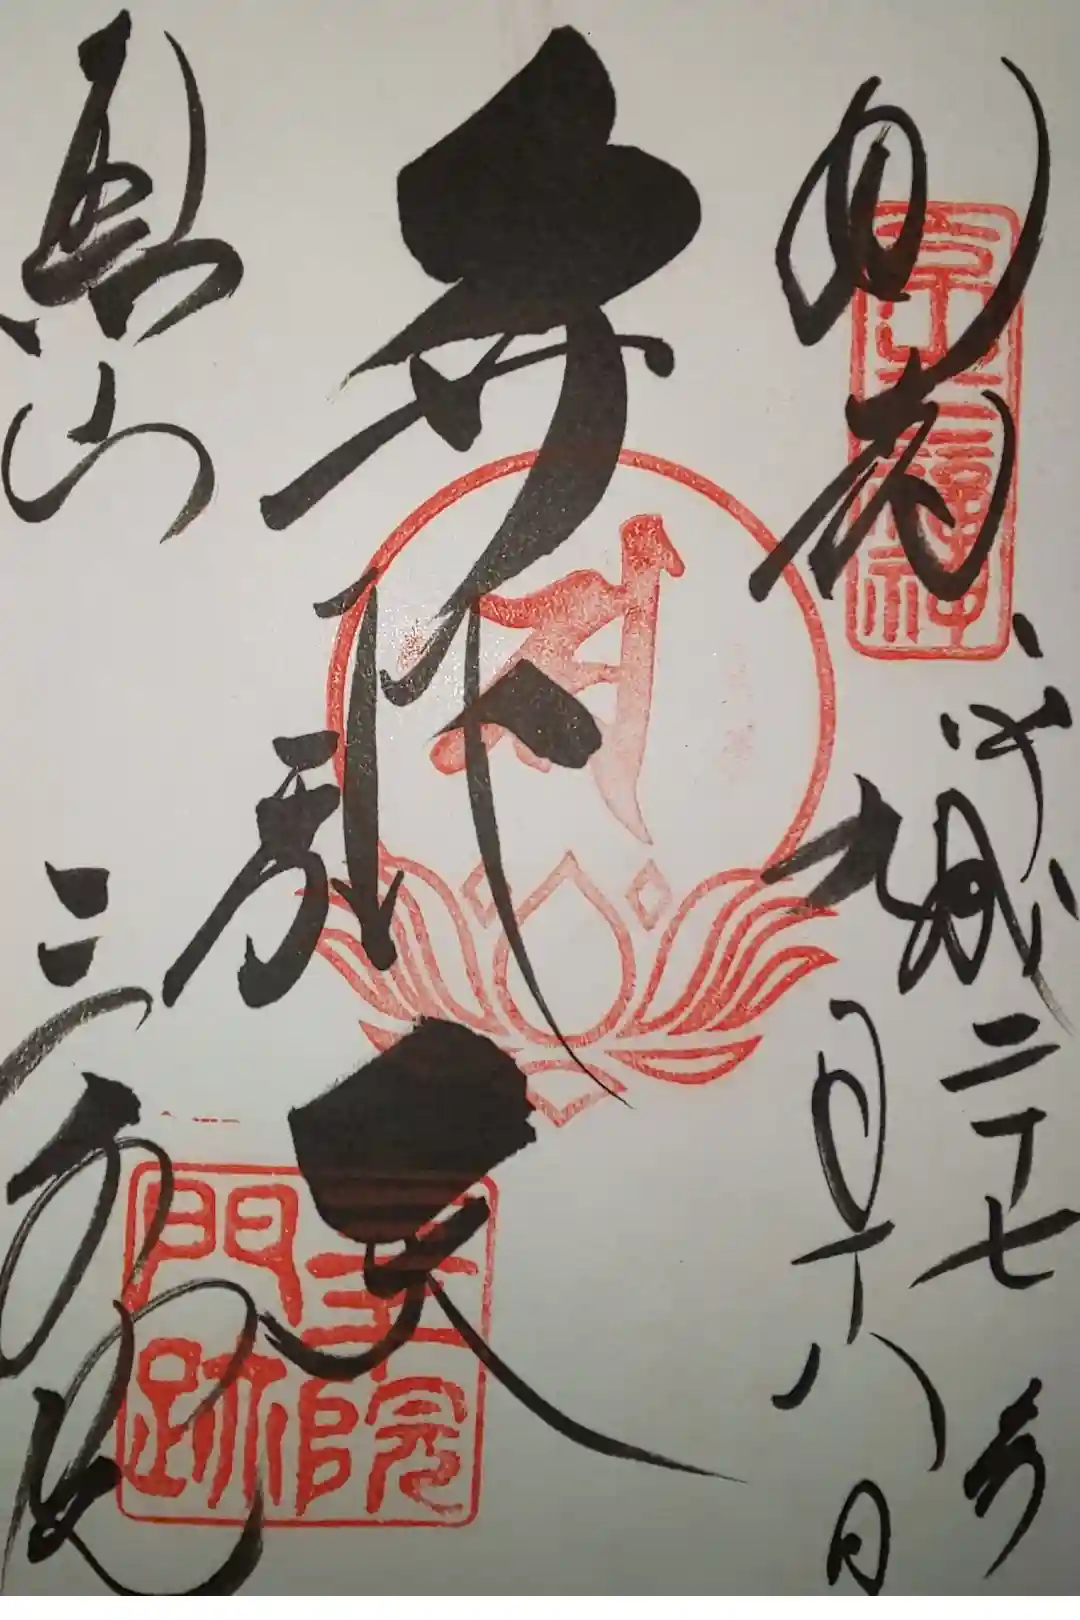 奉拝
平成二十七年
九月十八日
弁財天
魚山
三千院
三千院
門跡